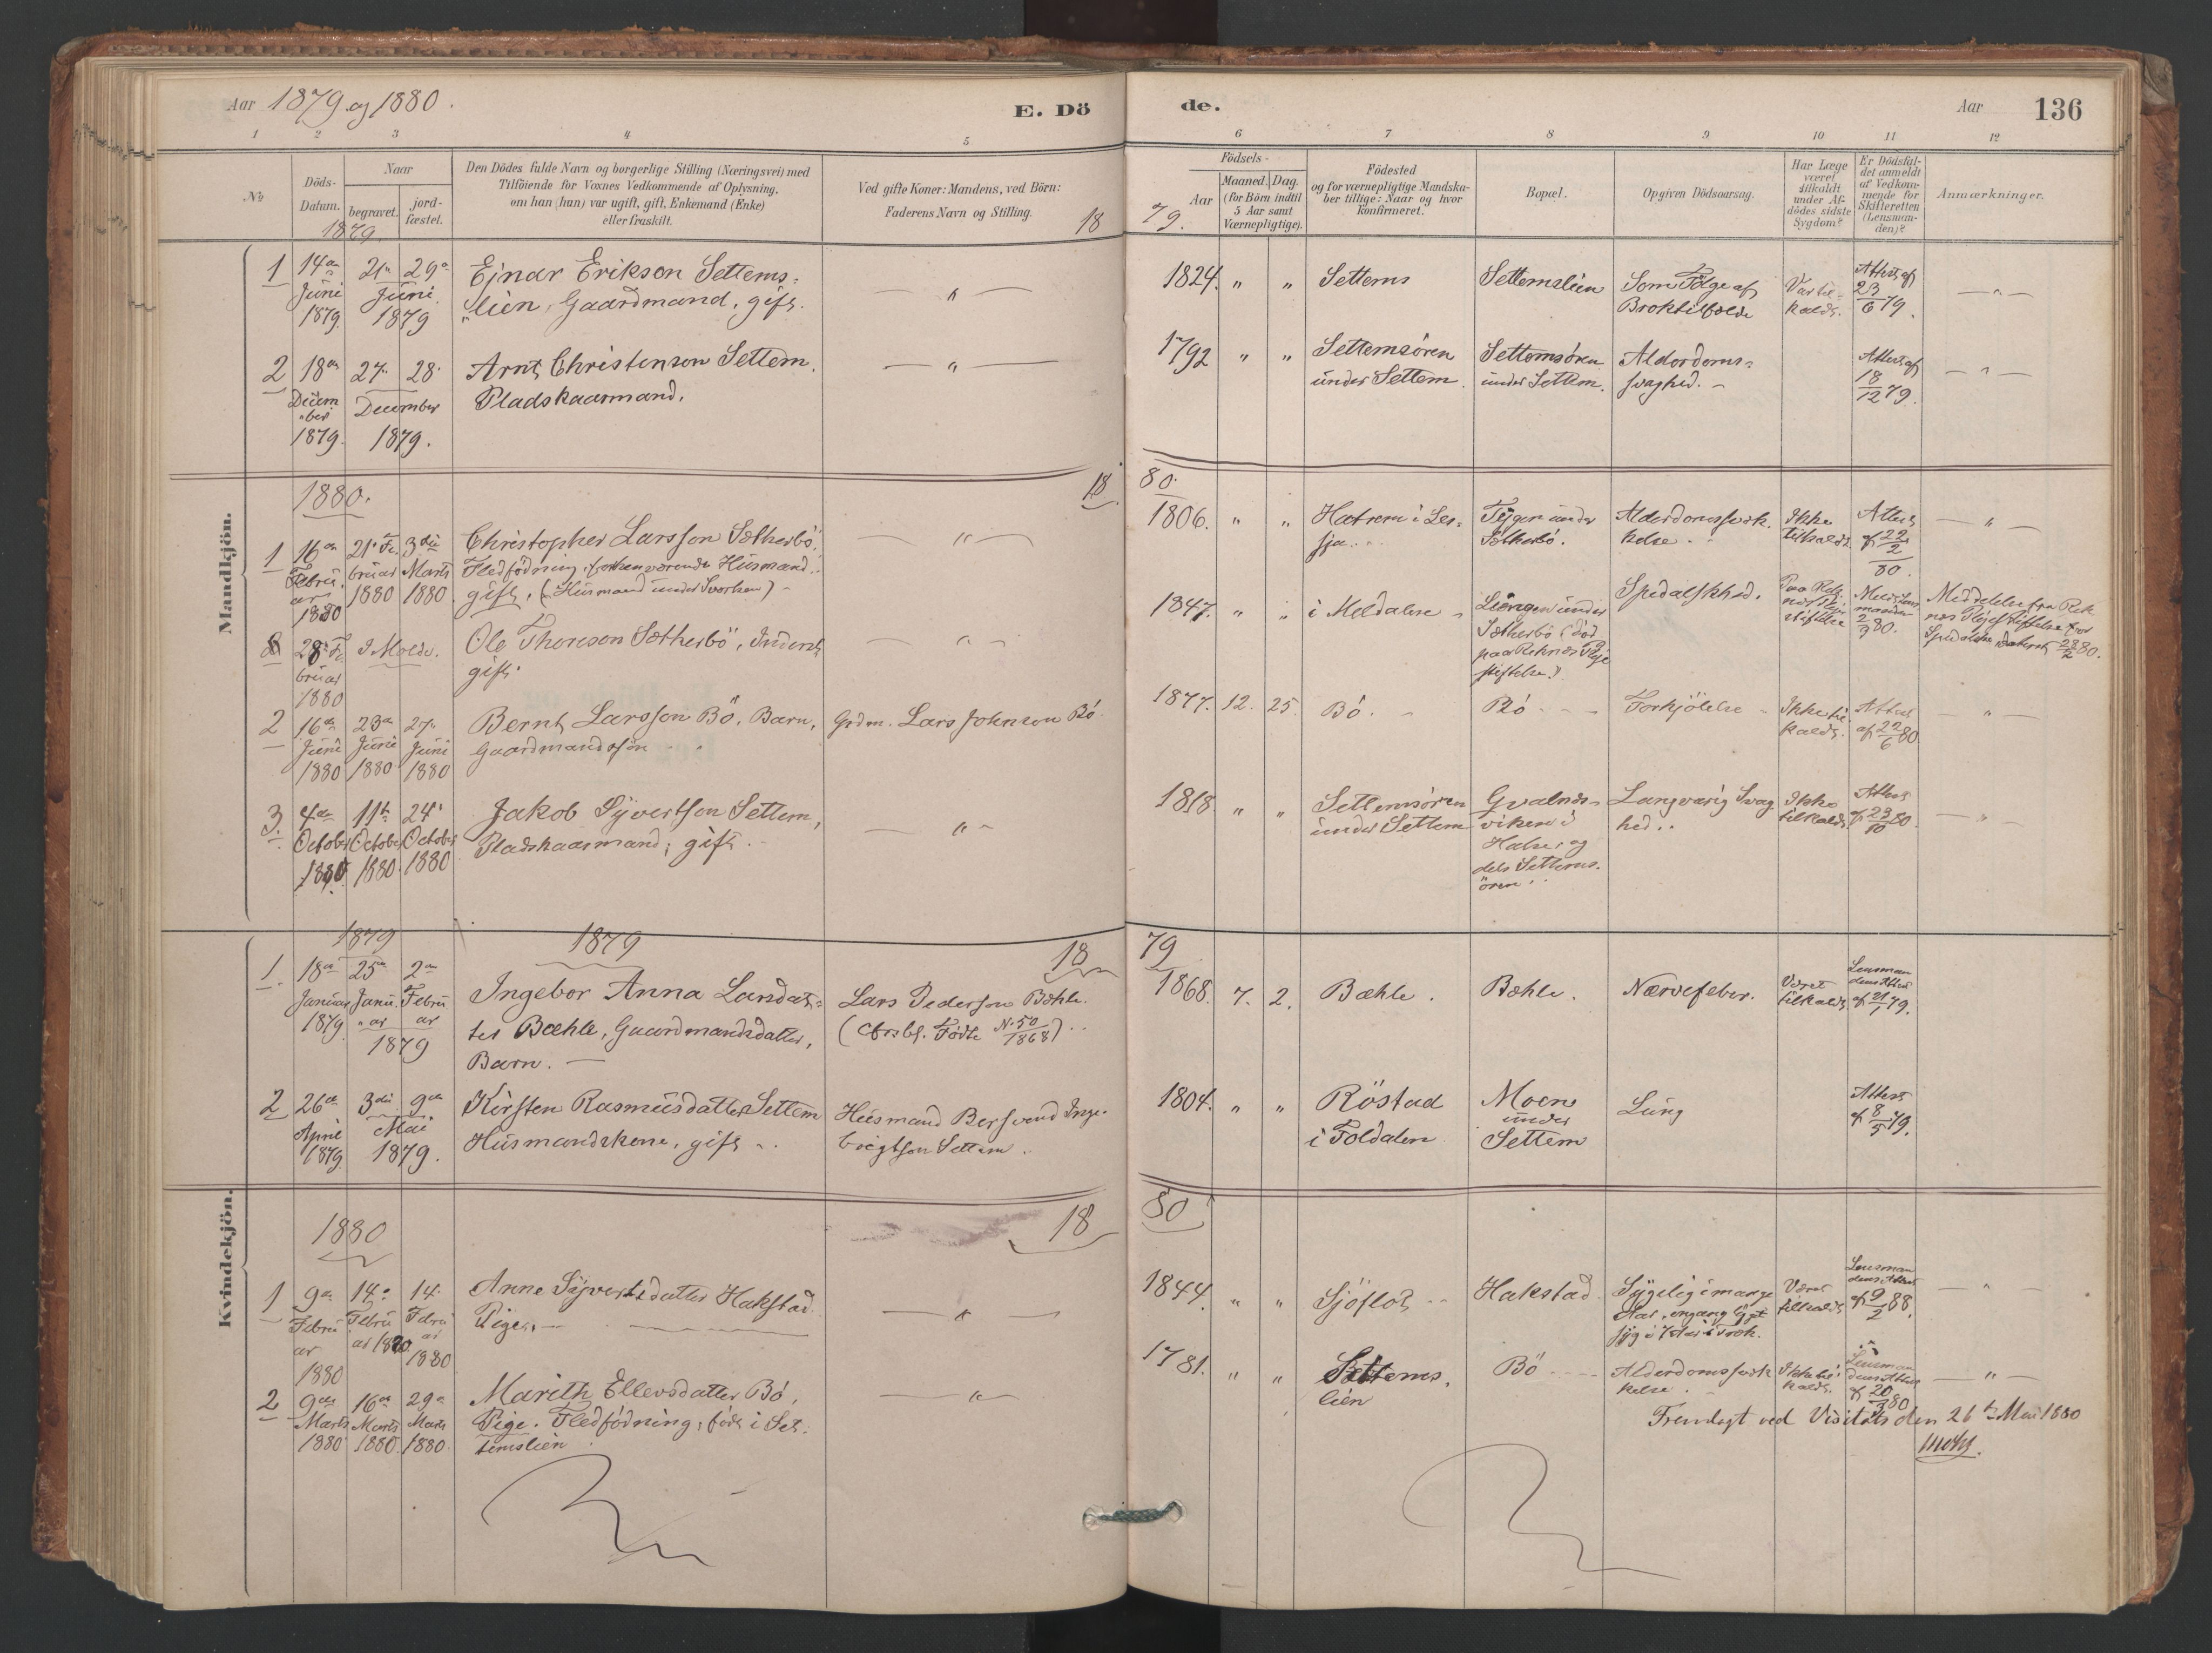 Aar 1879 og 1880.
E. Dö
1 2 3 4 5
№
Döds-Datum.
Naar
begravet.
jord-fæstet.
Den Dödes fulde Navn og borgerlige Stilling (Næringsvei) med
Tilföiende for Voxnes Vedkommende af Oplysning,
om han (hun) var ugift, gift, Enkemand (Enke)
eller fraskilt.
Ved gifte Koner: Mandens, ved Börn:
Faderens Navn og Stilling.
1879.
18
Mandkjön.
1 14de Juni 1879. 21de 29de Juni 1879
Ejnar Erikson Settems-
lien, Gaardmand, gift.
— " —
2 18de Decem-ber 1879. 27. 28. December 1879.
Arnt Christenson Settem.
Pladskaarmand.
— " —
1880.
18
1 16de Februar 1880 21. Februar 1880 3die Marts 1880
Christopher Larsson Sætherbö,
Fledfödning, forhenværende Husmand
gift. (Husmand under Svorken)
— " —
28. Februar 1880 I Molde.
Ole Thoreson Sætherbö, Inderst
gift.
— " —
2 16de Juni 1880 23de Juni 1880 27. Juni 1880
Bernt Larsson Bö, Barn,
Gaardmandssön
Grdm. Lars Johnson Bö.
3. 4de October 1880 11te October 1880. 24. October 1880
Jakob Syvertson Settem,
Pladskaarmand, gift.
— " —
Kvindekjön.
1879
1879
18
1. 18de Januar 1879. 25de Januar 2den Februar 1879
Ingebor Anna Larsdat-
ter Bæhle, Gaardmandsdatter,
Barn. —
Lars Pederson Bæhle.
(Födte N. 50/1868)
2 26de April 1879. 3die 9de Mai 1879.
Kirsten Rasmusdatter Settem
Husmandskone, gift
Husmand Bersvend Inge-
brigtson Settem.
1880
18
1 9de Februar 1880 14. Februar 1880. 14. Februar 1880
Anne Syvertsdatter Hakstad
Pige. —
— " —
2 9de Marts 1880 16de Marts 1880. 29de Marts 1880.
Marith Ellevsdatter Bö,
Pige. Fledfödning, født i Set-
temslien
— " —
de.
Aar 136
6 7 8 9 10 11 12
Födsels-
Aar
Maaned. Dag.
(for Börn indtil
5 Aar samt
Værnepligtige).
Födested
og for værnepligtige Mandska-
ber tillige: Naar og hvor
konfirmeret.
Bopæl.
Opgiven Dödsaarsag.
Har Læge
været
tilkaldt
under Af-
dödes sidste
Sygdom?
Er Dödsfal-
det anmeldt
af Vedkom-
mende for
Skifteretten
(Lensman-
den)?
Anmærkninger.
79.
1824. " " Settems Settemslien Som Fölge af
Broktilfælde
Var til-
kaldt.
Attest af
23/6 79.
— " —
1792 " " Settemsören
under Settem.
Settemsören
under Settem.
Alderdoms-
svaghed. —
Attest af
18/12 79.
— " —
80.
1806. " " Hatrem i Les-
sja.
under
Sætherbö.
Alderdomssvæk-
kelse.
Ikke
tilkaldt
Attest
af 22/2 80.
— " —
1847. " " i Meldalen
under
Sætherbö (död
paa Reknes Pleje
stiftelse.)
Spedalskhed.
Paa Rek-
nes Pleje
stiftelse
2/3 80.
Meddelelse fra Rek
nes Plejestiftelse for
Spedalske dateret 28/2 80.
1877. 12. 25. Bö. Bö Forkjölelse
Ikke til
kaldt.
Attest
af 22/6 80.
— " —
1818. " " Settemsören
under Settem
Gvalnds-
viken i
Halse, og
dels Settems-
ören.
Langvarig Svag
hed.
Ikke
tilkaldt
Attest
af 23/10 80.
— " —
79
1868. 7. 2. Bæhle. Bæhle. Nervefeber.
Været
tilkaldt
Lensman
dens Attest
af 21/1 79.
1804. " " Röstad
i Foldalen
Moen
under
Settem
Lung
Attest
af 8/5 79.
80
1844. " " Sjöflot Hakstad
Sygelig i mange
Aar, engang ligget
syg i 7 Aar i Træk.
Været
tilkaldt
Lensman
dens Attest
af 9/2 88.
— " —
1781. " " Settems
lien
Bö
Alderdomssvæk
kelse.
Ikke til
kaldt.
Lensman
dens Attest
af 20/3 80
— " —
Fremlagt ved Visitats den 26de Mai 1880